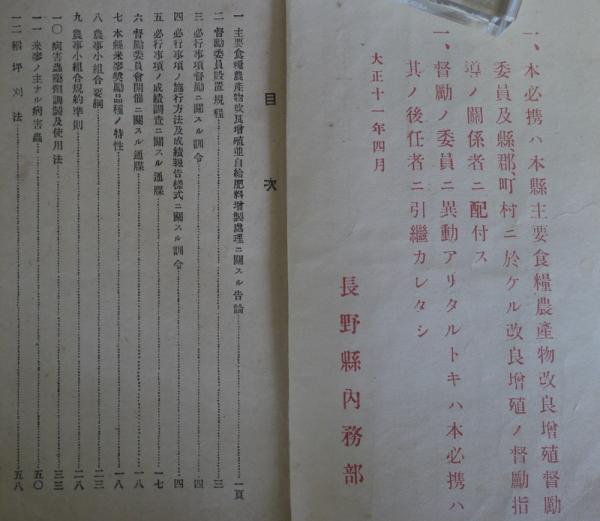 一、本必携ハ本縣主要食糧農產物改良增殖督勵
委員及縣、郡、町村ニ於ケル改良增殖ノ督勵指
導ノ關係者ニ配付ス
一、督勵ノ委員ニ異動アリタルトキハ本必携ハ
其ノ後任者ニ引繼カレタシ
大正十一年四月
長野縣內務部
目次
一 主要食糧農產物改良增殖並自給肥料增製處理ニ關スル告諭……一頁
二 督勵委員設置規程……三
三 必行事項督勵ニ關スル訓令……四
四 必行事項ノ施行方法及成績報告樣式ニ關スル訓令……四
五 必行事項ノ成績調査ニ關スル通牒……一七
六 督勵委員會開催ニ關スル通牒……一八
七 本縣米麥獎勵品種ノ特性……一八
八 農事小組合要綱……二三
九 農事小組合規約準則……二八
一〇 病害蟲藥劑調製及使用法……三三
一一 米麥ノ主ナル病害蟲……五〇
一二 稻坪刈法……五八